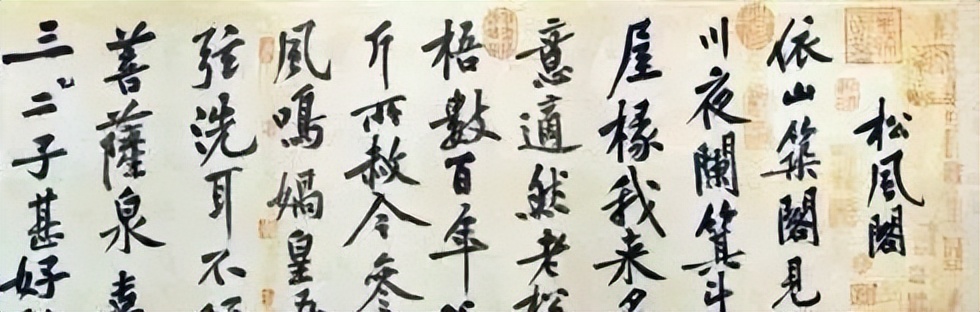 松風閣
依山築閣見
川夜闌箕斗
屋椽我来
意適然老松
梧數百年
斤所赦今參
風鳴媧皇五
弦洗耳不
菩薩泉
三二子甚好